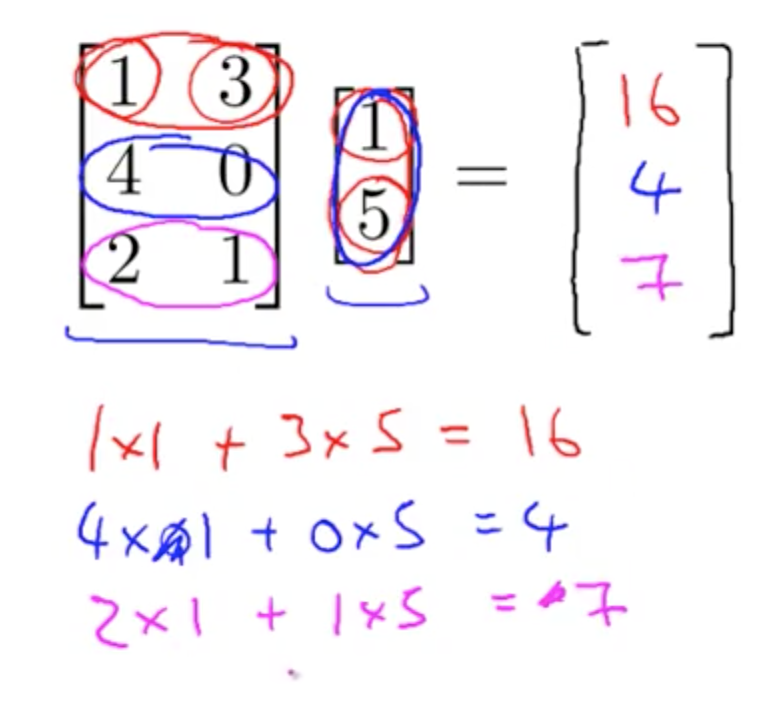 1 3
4 0
2 1
1
5
=
16
4
7
1×1 + 3×5 = 16
4×1 + 0×5 = 4
2×1 + 1×5 = 7